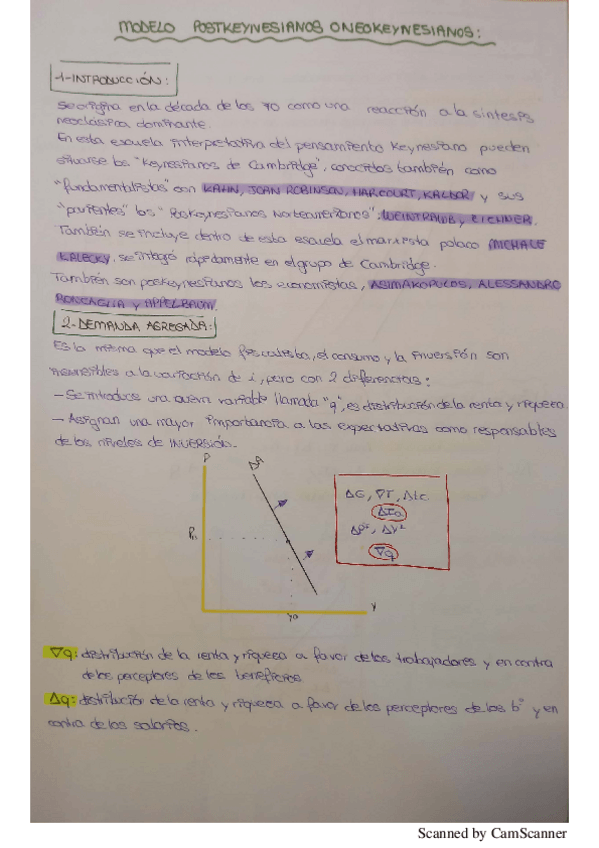 MODELO POSTKEYNESIANOS O NEOKEYNESIANOS:
1-INTRODUCCIÓN:
Se origina en la década de los 70 como una reacción a la síntesis
neoclásica dominante.
En esta escuela interpretativa del pensamiento Keynesiano pueden
situarse los "Keynesianos de Cambridge", conocidos también como
"fundamentalistas" con KAHN, JOAN ROBINSON, HARCOURT, KALDOR y sus
"parientes" los "Poskeynesianos Norteamericanos", WEINTRAUB y EICHNER.
También se incluye dentro de esta escuela el marxista polaco MICHALE
KALECKY, se integró rápidamente en el grupo de Cambridge.
También son poskeynesianos los economistas, ASIMAKOPULOS, ALESSANDRO
RONCAGLIA y APPELBAUM.
2-DEMANDA AGREGADA:
Es la misma que el modelo fiscalista, el consumo y la inversión son
insensibles a la variación de i, pero con 2 diferencias:
- Se introduce una nueva variable llamada "q", es distribución de la renta y riqueza.
- Asignan una mayor importancia a las expectativas como responsables
de los niveles de INVERSIÓN.
P
DA
ΔG, ∇T, Δtc
ΔI₀
∇q
P₀
Y
Y₀
∇q: distribución de la renta y riqueza a favor de los trabajadores y en contra
de los perceptores de los beneficios.
Δq: distribución de la renta y riqueza a favor de los perceptores de los bº y en
contra de los salarios.
Scanned by CamScanner